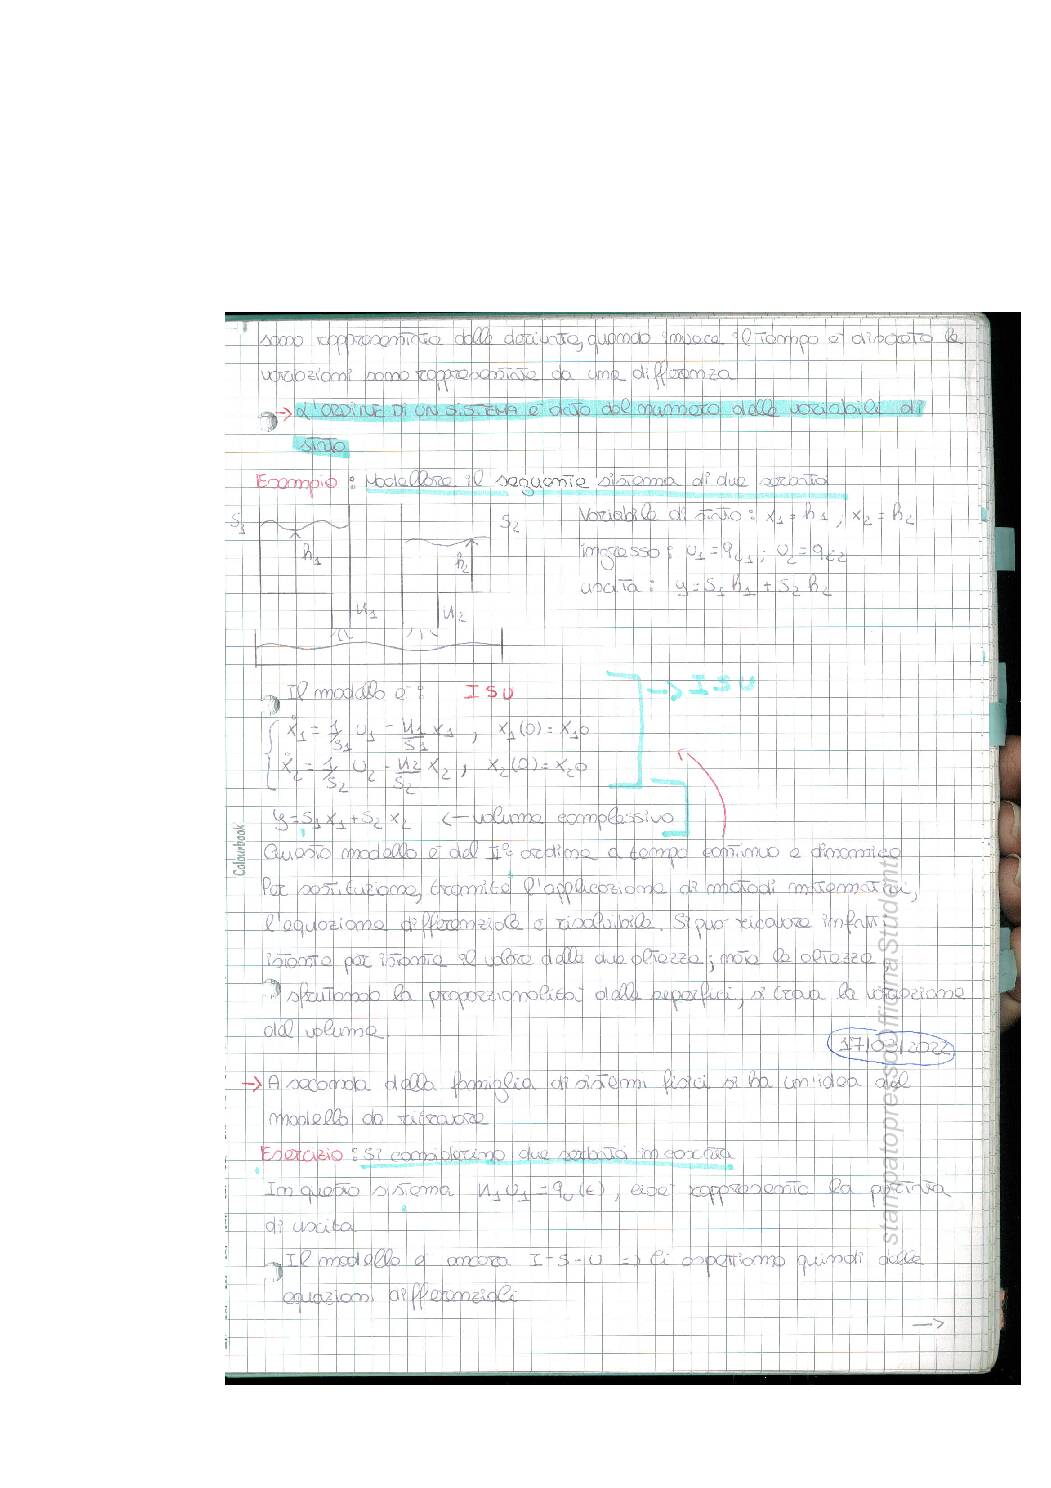 sono rappresentate dalle derivate, quando invece il tempo e' discreto le
variazioni sono rappresentate da una differenza
→ L'ORDINE DI UN SISTEMA e' dato dal numero delle variabili di
stato
Esempio: Modellare il seguente sistema di due serbatoi
S1 h1 S2 h2
Variabile di stato: x1 = h1, x2 = h2
ingresso: u1 = q; u2 = q
uscita: y = S1 h1 + S2 h2
k1 k2
Il modello e': I S U
→ I S U
ẋ1 = 1/S1 u1 - k1/S1 x1, x1(0) = x10
ẋ2 = 1/S2 u2 - k2/S2 x2, x2(0) = x20
y = S1 x1 + S2 x2 ← volume complessivo
Questo modello e' del II° ordine a tempo continuo e dinamico
Per sostituzione, tramite l'applicazione di metodi matematici,
l'equazione differenziale e' risolvibile. Si puo' ricavare infatti
istante per istante il valore delle due altezze; note le altezze
sfruttando la proporzionalita' delle superfici, si trova la variazione
del volume.
17/03/2022
→ A seconda della famiglia di sistemi fisici si ha un'idea del
modello da ricavare
Esercizio: Si considerino due serbatoi in cascata
In questo sistema k1 u1 = qu(t), cioe' rappresenta la portata
di uscita
Il modello e' ancora I-S-U => Ci aspettiamo quindi delle
equazioni differenziali
→
Colourbook
stampatopressoOfficinaStudenti